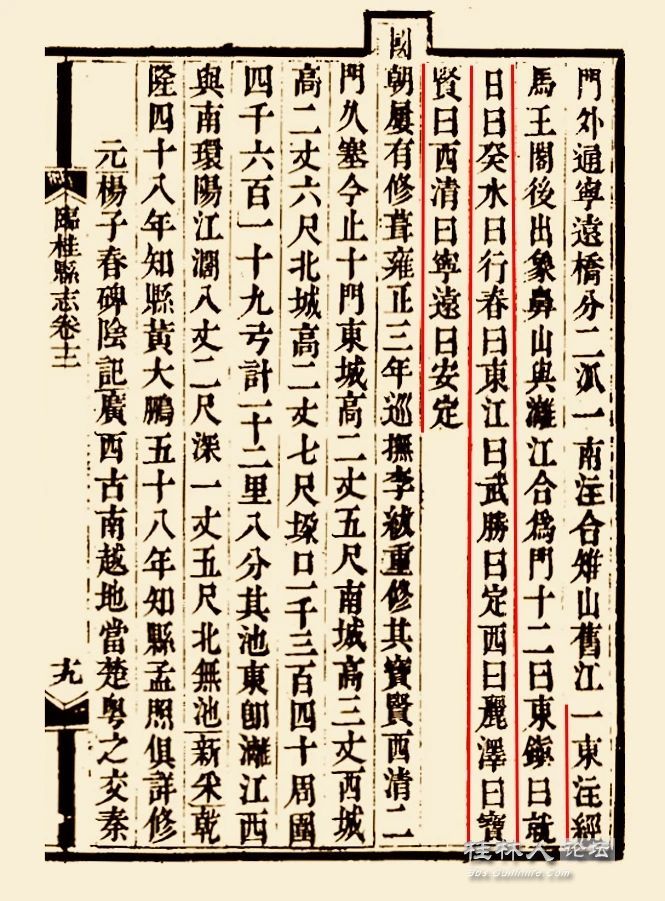 門外通寧遠橋分二派一南注合雉山舊江一東注經
馬王閣後出象鼻山與灕江合爲門十二曰東鎮曰就
日曰癸水曰行春曰東江曰武勝曰定西曰麗澤曰寶
賢曰西清曰寧遠曰安定
國朝屢有修葺雍正三年巡撫李紱重修其寶賢西清二
門久塞今止十門東城高二丈五尺南城高三丈西城
高二丈六尺北城高二丈七尺垜口一千三百四十周圍
四千六百一十九弓計一十二里八分其池東卽灕江西
與南環陽江濶八丈二尺深一丈五尺北無池新采乾
隆四十八年知縣黃大鵬五十八年知縣孟照俱詳修
元楊子春碑陰記廣西古南越地當楚粤之交秦
臨桂縣志卷十二
十九
桂林人论坛
bbs.Guilinlife.Com